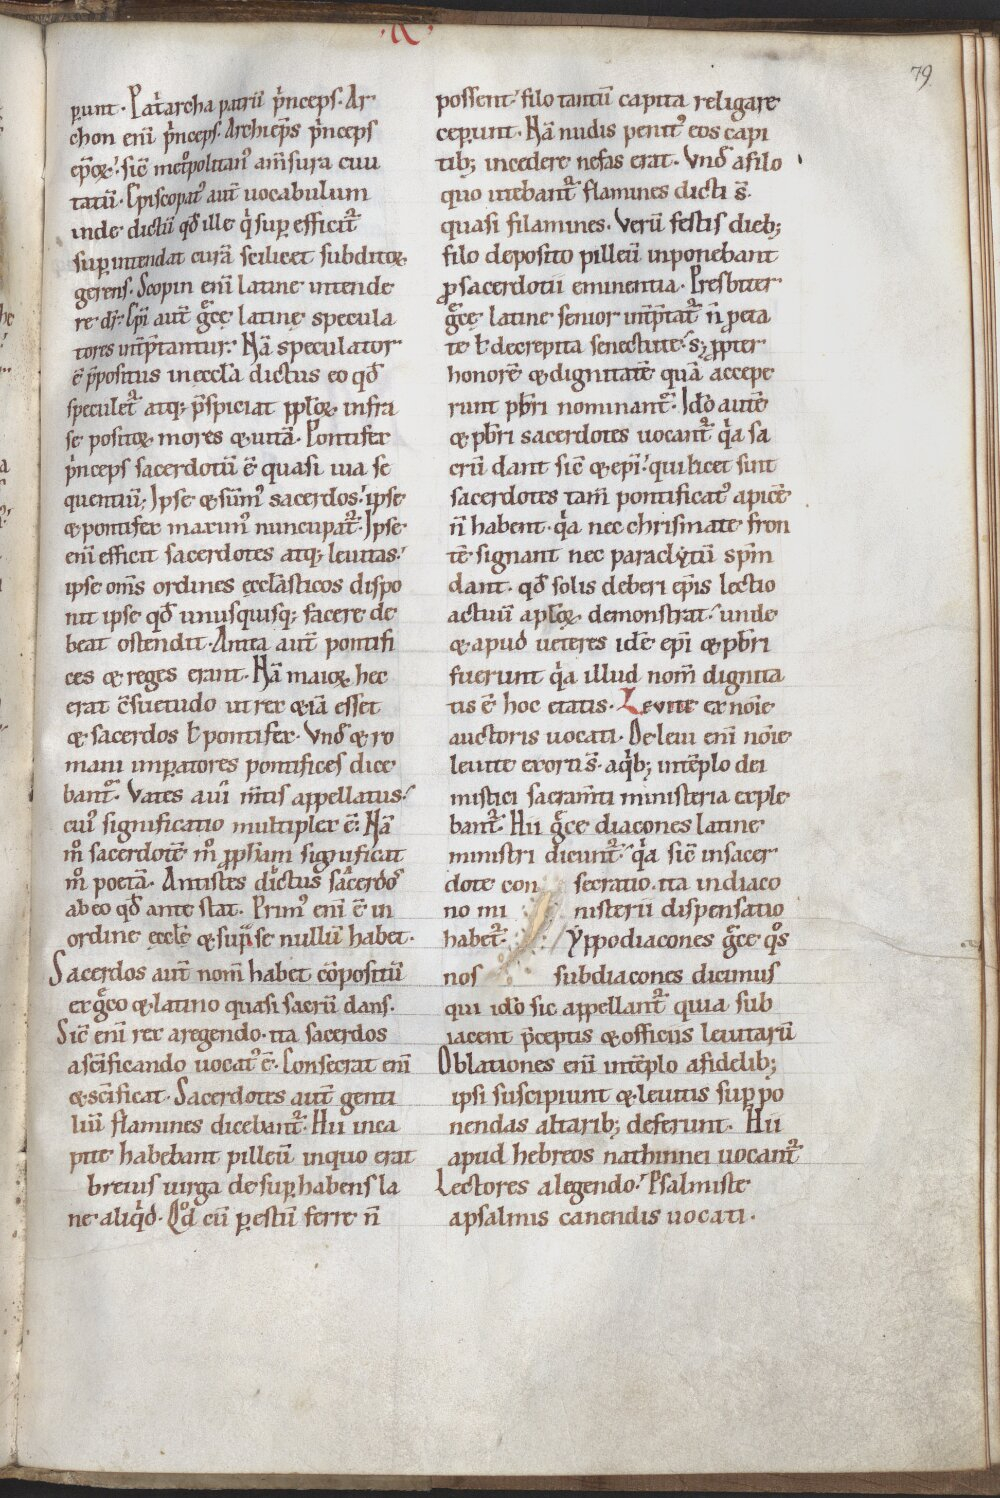 79
ꝑunt. Pat͛archa patrū p͛nceps. Ar
chon eni͂ p͛nceps. Archiep̄s p͛nceps
ep̄oꝝ. sic̄ met͛politan᾽ a m̄sura ciui
tatū. Episcopat᾽ aut̄ uocabulum
inde dictū qd̄ ille q͛ suꝑ efficit᾽
suꝑintendat curā scilicet subditoꝝ
gerens. Scopin eni͂ latine intende
re dr̄. Ep̄i aut̄ gͣce latine specula
tores int̄p̄tantur. Nā speculator
ē p̄positus in eccl̄a dictus eo qd̄
speculet᾽ atq; p̄spiciat ppl̄oꝝ infra
se positoꝝ mores & uitā. Pontifex
p͛nceps sacerdotū ē quasi uia se
quentiū. Ipse & sūm᾽ sacerdos. ipse
& pontifex maxim᾽ nuncupat᾽. Ipse
eni͂ efficit sacerdotes atq; leuitas.
ipse om̄s ordines eccl̄asticos dispo
nit ipse qd̄ unusquisq; facere de
beat ostendit. Antea aut̄ pontifi
ces & reges erant. Nā maioꝝ hec
erat c̄suetudo ut rex & iā esset
& sacerdos ł pontifex. Vnd̄ & ro
mani inꝑatores pontifices dice
bant᾽. Vates a ui m̄tis appellatus.
cui᾽ significatio multiplex ē. Nā
m° sacerdotē m° ꝓph̄am significat
m° poetā. Antistes dictus sacerdos
ab eo qd̄ ante stat. Prim᾽ eni͂ ē in
ordine eccl̄e & supͣ se nullū habet.
Sacerdos aut̄ nom̄ habet cōpositū
ex gͣco & latino quasi sacrū dans.
Sic̄ eni͂ rex a regendo. ita sacerdos
a sc̄ificando uocat᾽ ē. Consecrat eni͂
& sc̄ificat. Sacerdotes aut̄ genti
liū flamines dicebant᾽. Hii in ca
pite habebant pilleū in quo erat
breuis uirga desuꝑ habens la
ne aliq͛d. Qd̄ cū ꝑ estū ferre n̄
possent. filo tantū capita religare
ceꝑunt. Nā nudis penit᾽ eos capi
tib; incedere nefas erat. Vnd̄ a filo
quo utebant᾽ flamines dicti s̄.
quasi filamines. Verū festis dieb;
filo deposito pilleū inponebant
ꝓ sacerdotii eminentia. Presbiter
gͣce latine senior int̄p̄tat᾽ n̄ ꝓ eta
te ł decrepita senectute. s; ꝓpter
honorē & dignitatē quā accepe
runt pb̄ri nominant᾽. Ido autē
& pb̄ri sacerdotes uocant᾽ q͛a sa
crū dant sic̄ & ep̄i. qui licet sint
sacerdotes tam̄ pontificat᾽ apicē
n̄ habent. q͛a nec chrismate fron
tē signant nec paraclẏtū sp̄m
dant. qd̄ solis deberi ep̄is lectio
actuū apl̄oꝝ demonstrat. unde
& apud ueteres idē ep̄i & pb̄ri
fuerunt q͛a illud nom̄ dignita
tis ē hoc etatis. Leuite ex nōie
auctoris uocati. De leui eni͂ nōie
leuite exorti s̄. a q͛b; in tēplo dei
mistici sacram̄ti ministeria exple
bant᾽. Hii gͣce diacones latine
ministri dicunt᾽. q͛a sic̄ in sacer
dote con secratio. ita in diaco
no mi nisterii dispensatio
habet᾽. Yppodiacones gͣce q°s
nos subdiacones dicimus
qui ido sic appellant᾽ quia sub
iacent p̄ceptis & officiis leuitarū
Oblationes eni͂ in tēplo a fidelib;
ipsi suscipiunt & leuitis suꝑ po
nendas altarib; deferunt. Hii
apud hebreos nathinnei uocant᾽
Lectores a legendo. Psalmiste
a psalmis canendis uocati.